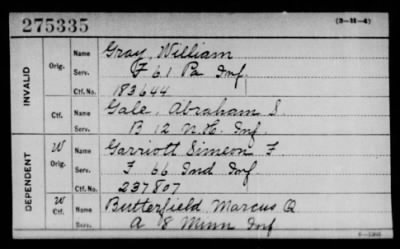 275335 (3-M-4)
INVALID
Orig. Name Gray, William
Serv. F 61 Pa Inf.
Ctf. No. 183644
Ctf. Name Gale, Abraham S.
Serv. B 12 N.H. Inf.
DEPENDENT
W Orig. Name Garriott Simeon F
Serv. F 66 Ind Inf
Ctf. No. 237807
W Ctf. Name Butterfield Marcus Q
Serv. A 8 Minn Inf